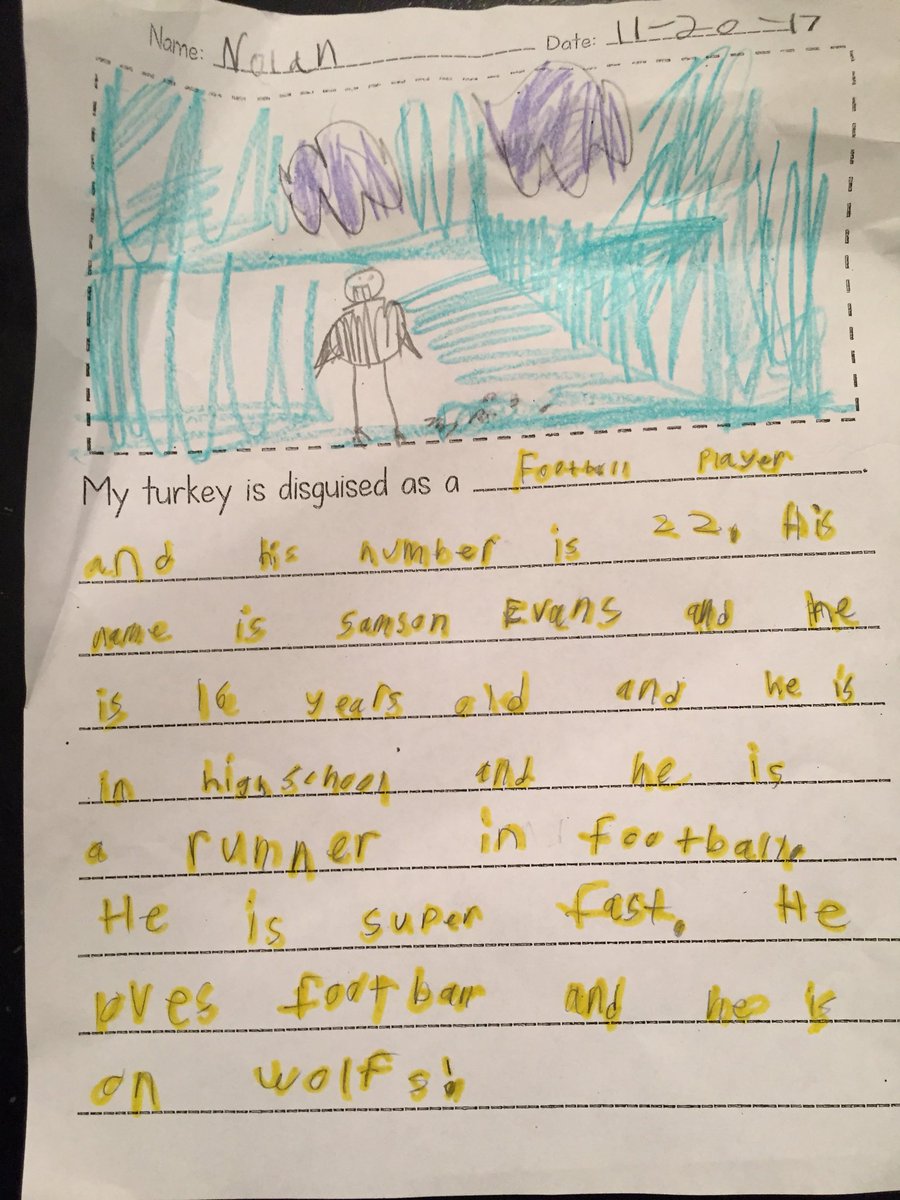 Name: Nolan Date: 11-20-17
My turkey is disguised as a Football Player.
and his number is 22. His
name is Samson Evans and he
is 16 years old and he is
in highschool and he is
a runner in football.
He is super fast. He
loves football and he is
on wolfs!